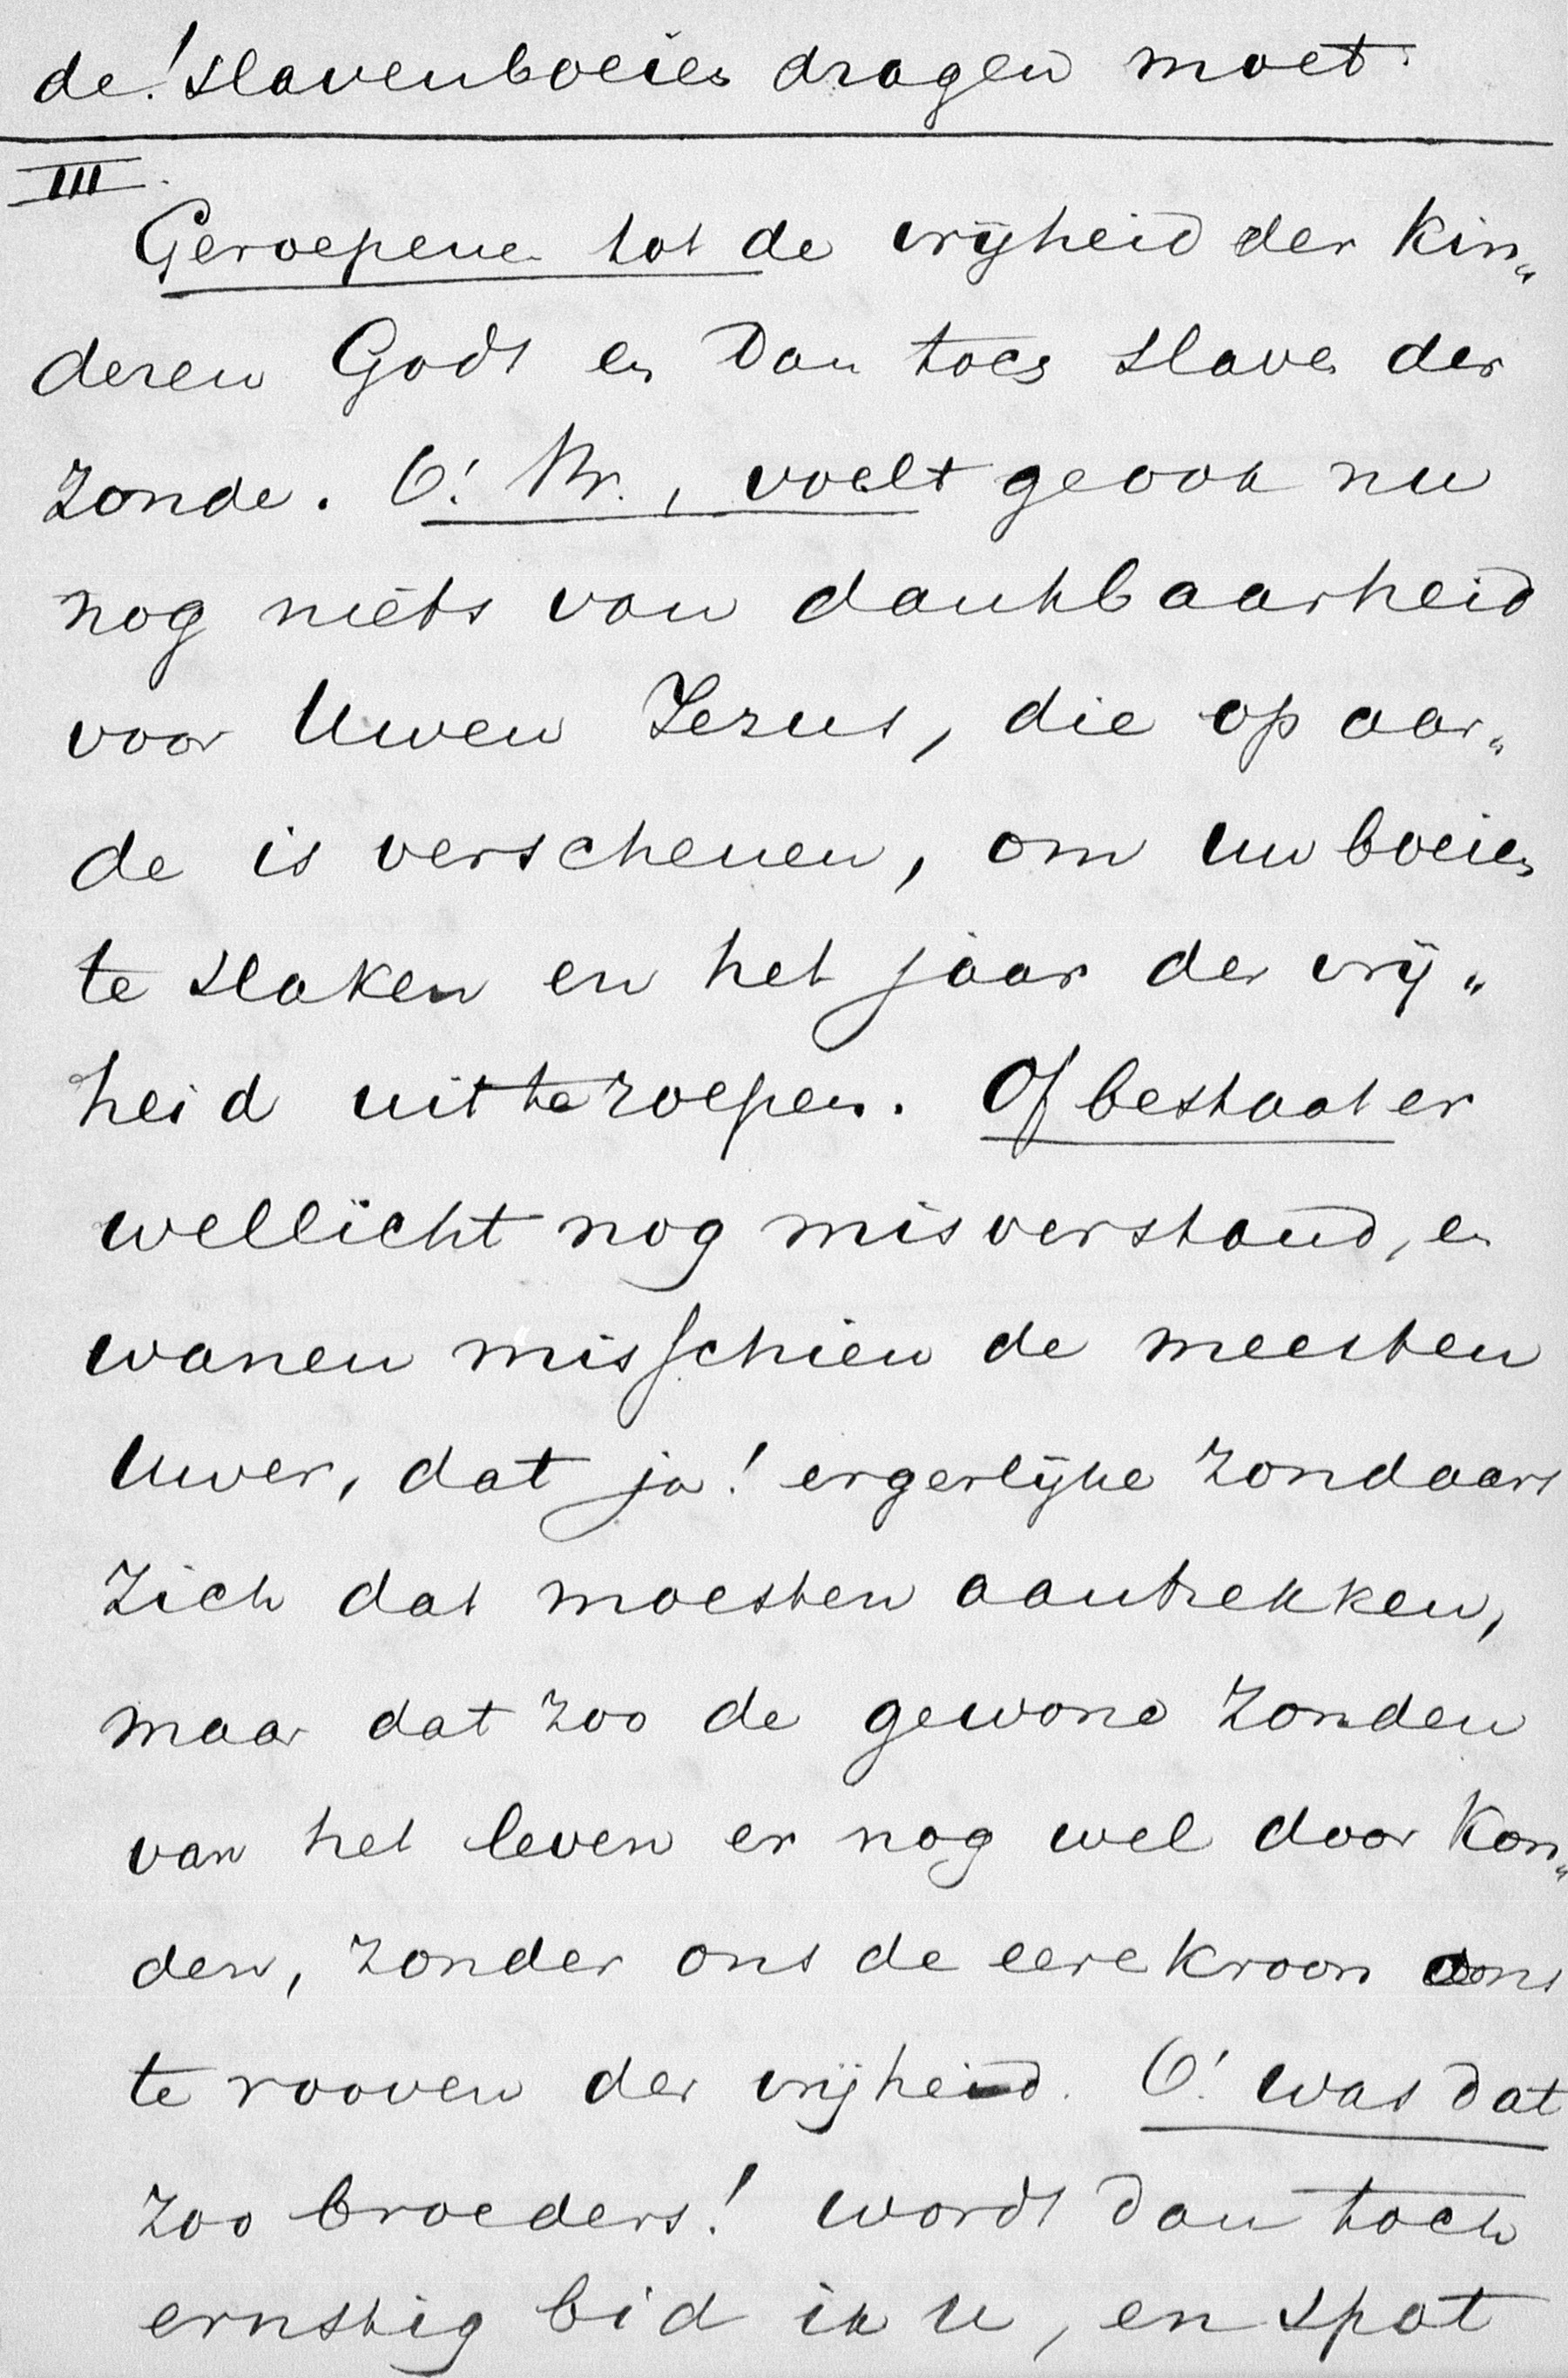 de! slavenboeien dragen moet.
III.
Geroepene tot de vrijheid der Kin„
deren Gods en dan toch slaven der
Zonde. O! Br., voelt ge ook nu
nog niets van dankbaarheid
voor Uwen Jezus, die op aar„
de is verschenen, om uw boeien
te slaken en het jaar der vrij„
heid uit te roepen. Of bestaat er
wellicht nog misverstand, en
wanen misschien de meesten
Uwer, dat ja! ergerlijke Zondaars
Zich dat moesten aantrekken,
maar dat Zoo de gewone Zonden
van het leven er nog wel door Kon„
den, Zonder ons de eerekroon ons
te rooven der vrijheid. O! was dat
Zoo broeders! wordt dan toch
ernstig bid ik u, en spot